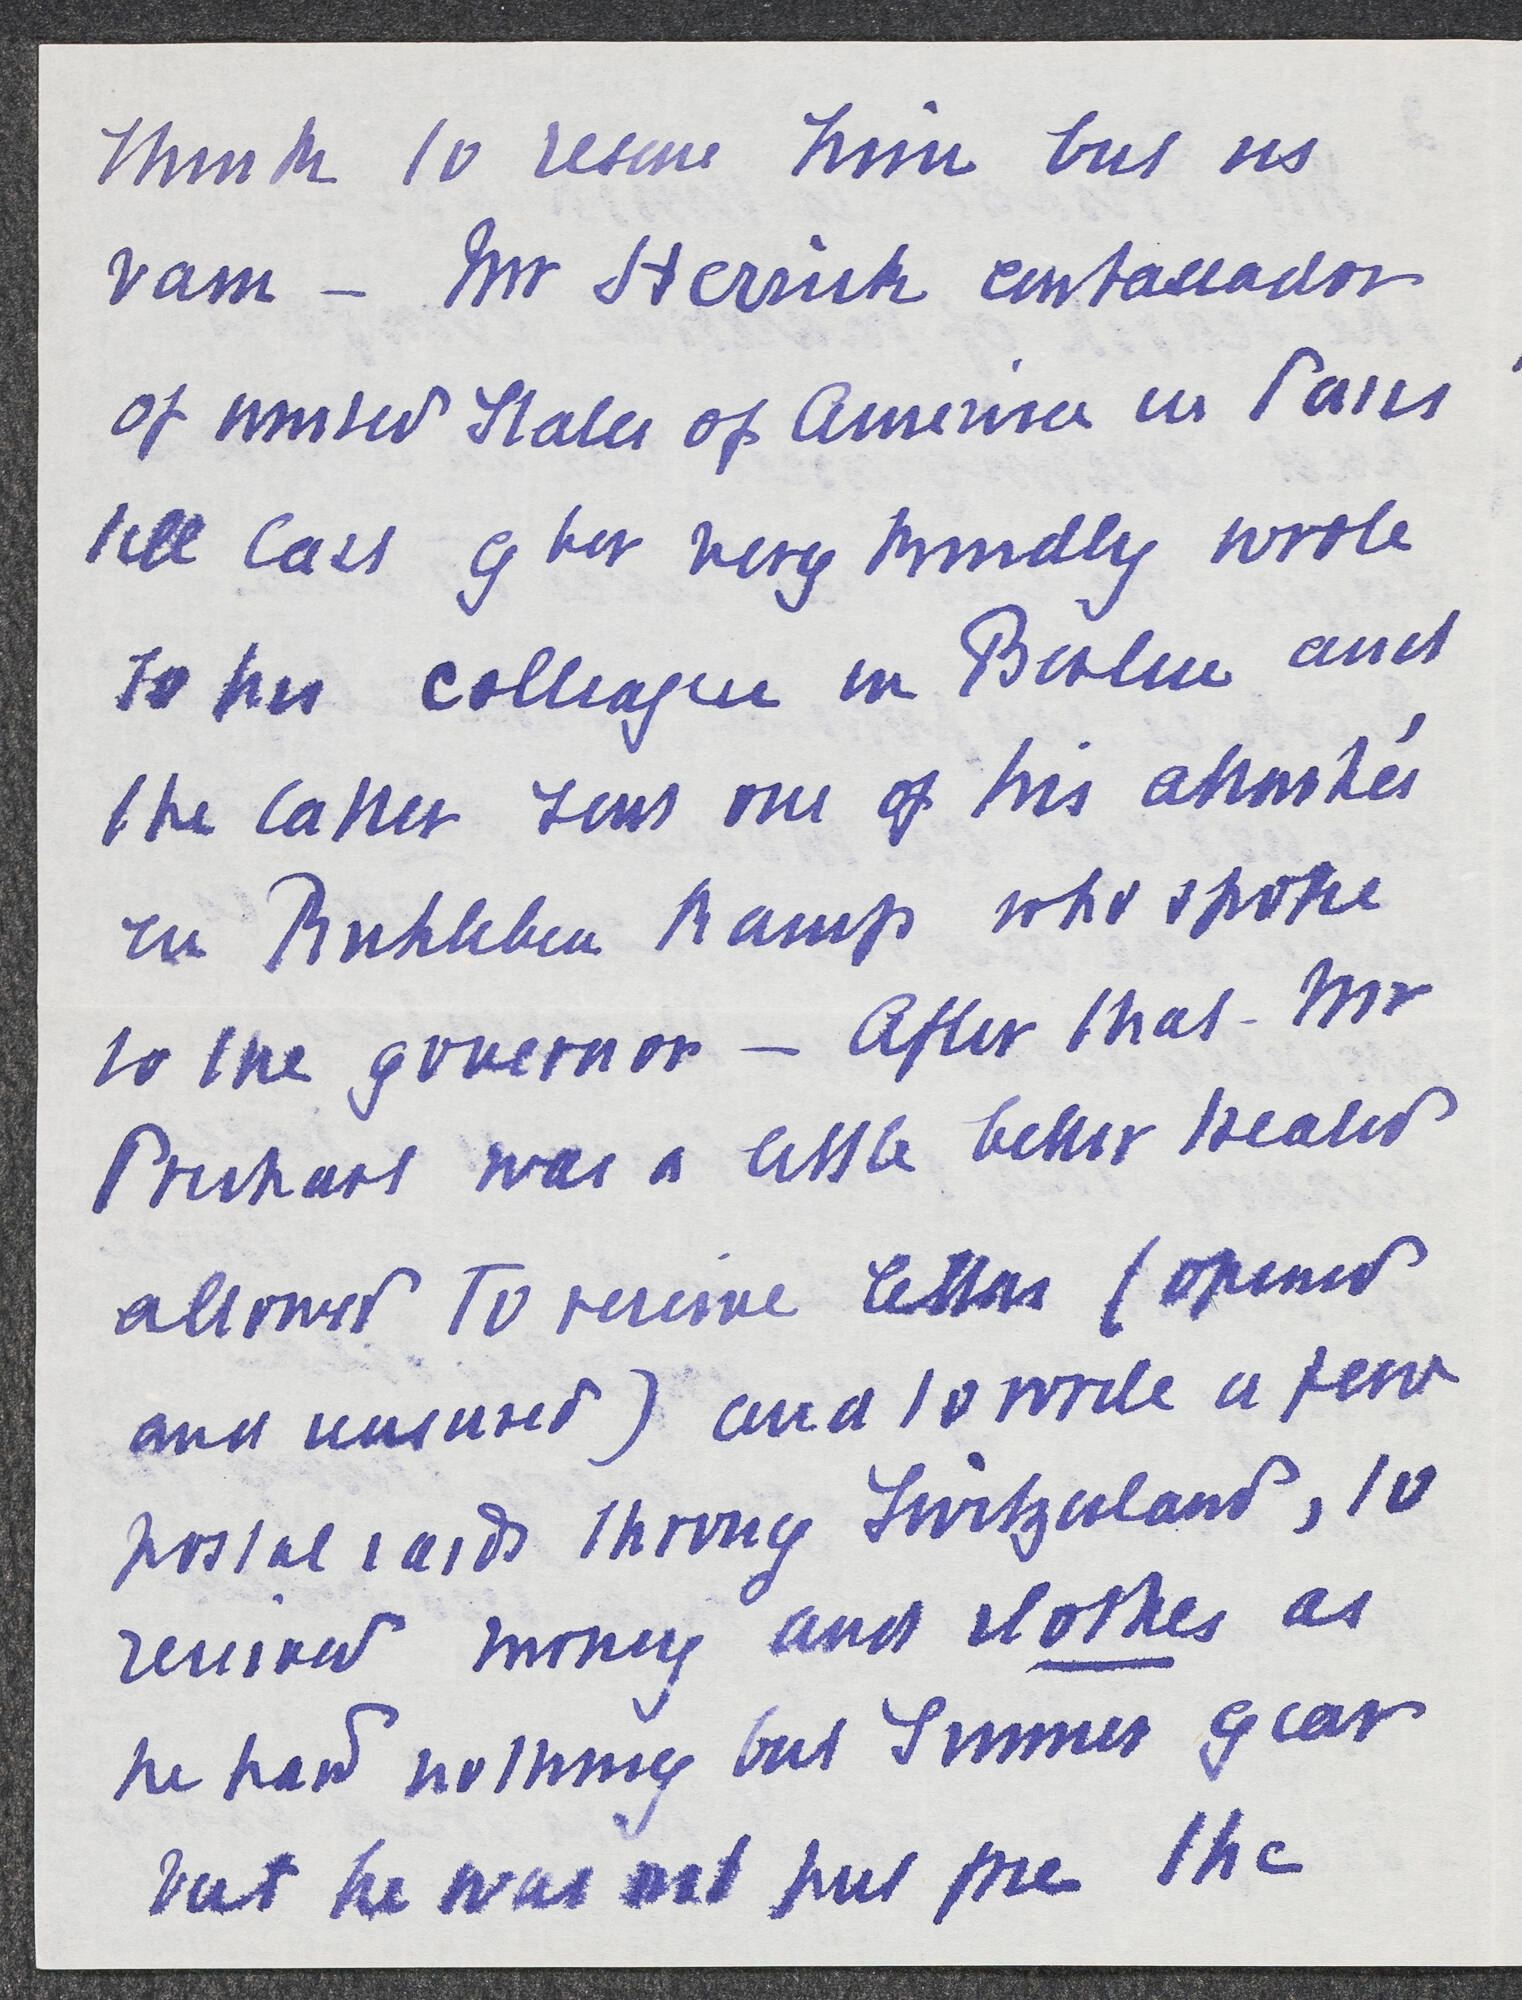 think to rescue him but in
vain — Mr Herrick embassador
of united States of America in Paris
till last 9ber very kindly wrote
to his colleague in Berlin and
the latter sent one of his attachés
in Ruhleben Kamp who spoke
to the governor — After that - Mr
Prichard was a little better treated
allowed To receive letters (opened
and censured) and to write a few
postal cards throug Switzerland, to
received money and clothes as
he had nothing but Summer gear
but he was not put free the